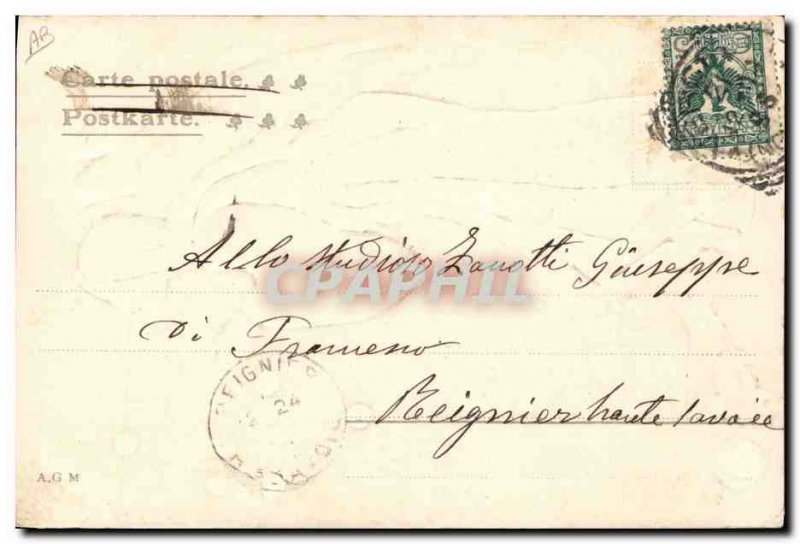 AR
Carte postale.
Postkarte.
Allo studioso Zanotti Giuseppe
di Francesco
Reignier haute savoie
REIGNIER
24
Hte SAVOIE
A.G M
CPAPHIL